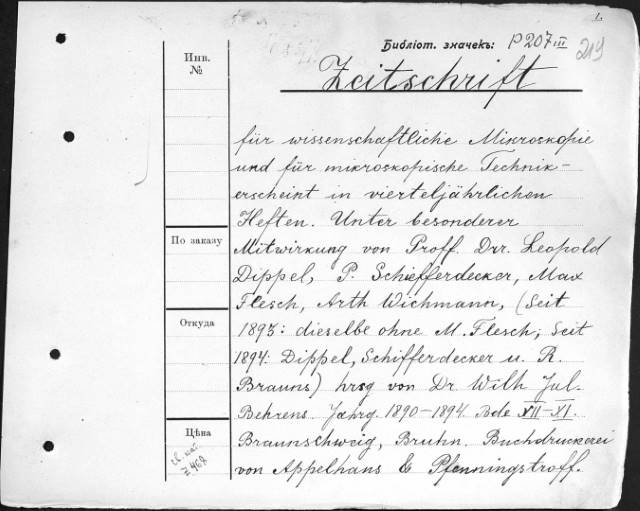 Библіот. значекъ: P 207 III
219
Zeitschrift
Инв.
№
für wissenschaftliche Mikroskopie
und für mikroskopische Technik-
erscheint in vierteljährlichen
Heften. Unter besonderer
По заказу
Mitwirkung von Proff. Drr. Leopold
Dippel, P. Schiefferdecker, Max
Flesch, Arth Wichmann, (Seit
Откуда
1893: dieselbe ohne M. Flesch; Seit
1894: Dippel, Schifferdecker u. R.
Brauns) hrsg von Dr. Wilh Jul.
Behrens. Jahrg. 1890-1894. Bde XII-XI.
Цѣна
Braunschweig, Bruhn. Buchdruckerei
von Appelhans & Pfenningstroff.